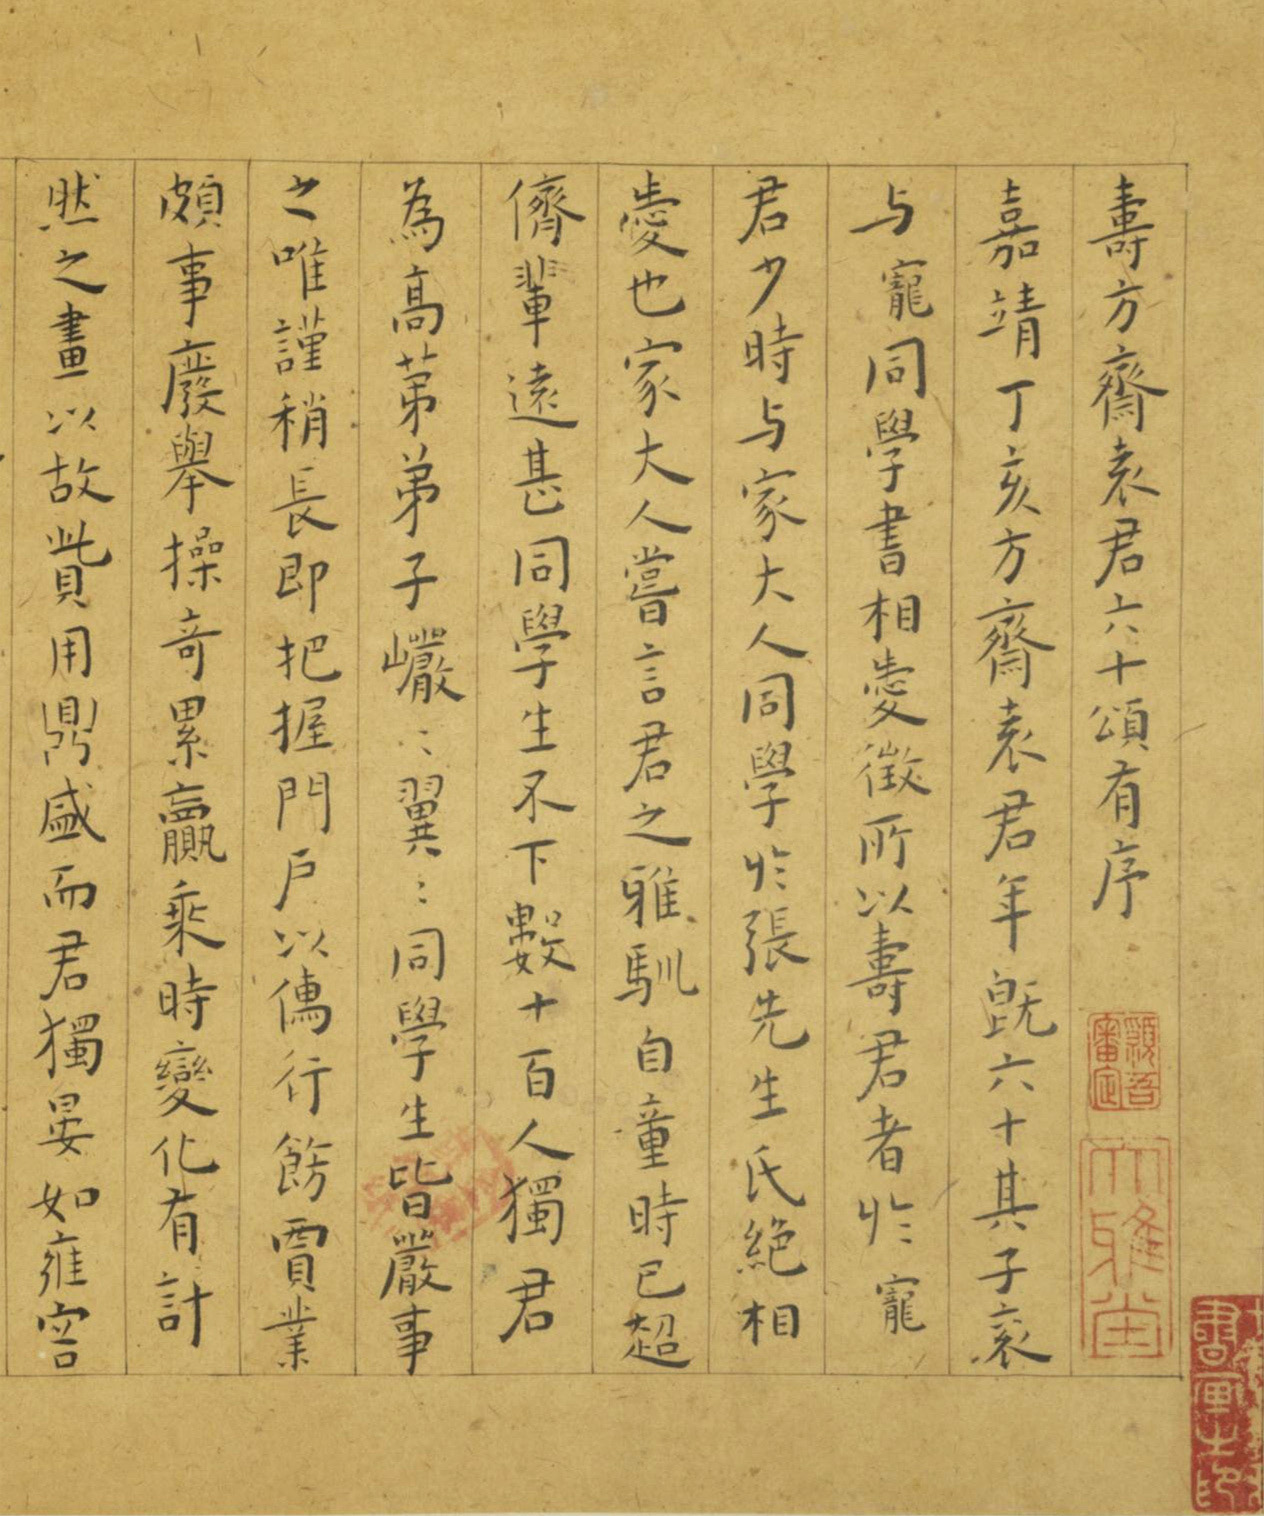 壽方齋袁君六十頌有序
嘉靖丁亥方齋袁君年既六十其子袠
与寵同學書相愛徵所以壽君者於寵
君少時与家大人同學於張先生氏絕相
愛也家大人嘗言君之雅馴自童時已超
儕輩遠甚同學生不下數十百人獨君
為高苐弟子巗〻翼〻同學生皆嚴事
之唯謹稍長即把握門戶以儁行飭賈業
頗事廢舉操奇累贏乘時變化有計
然之畫以故貲用鼎盛而君獨晏如雍容
頌吾審定
大雅堂